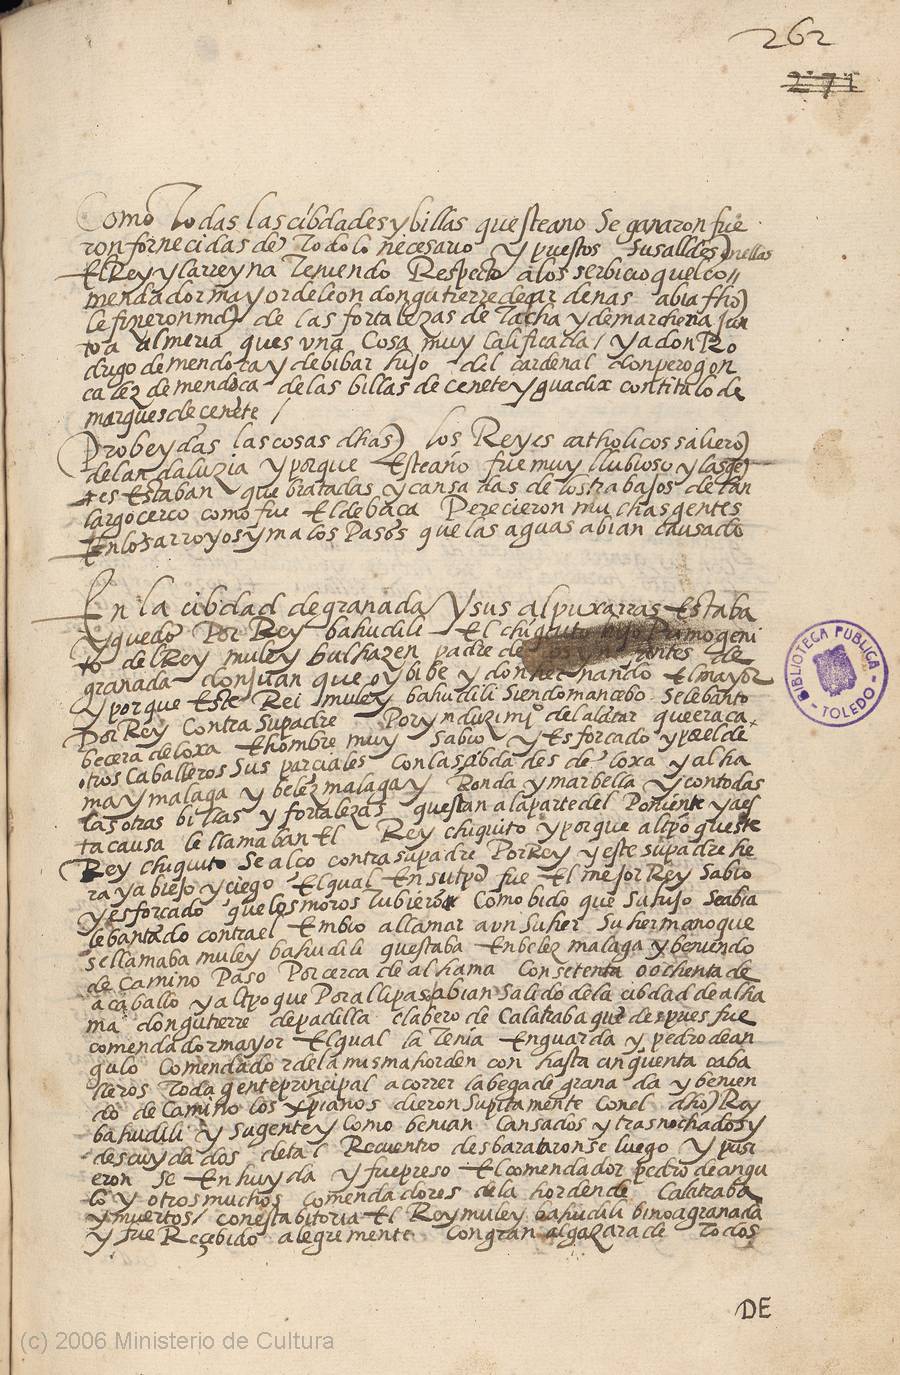 262
271
Como Todas las cibdades y billas que ste ano Se ganaron fue
ron fornecidas de Todo lo necesario y puestos Sus alldes enellas
El Rey y la rreyna Teniendo Respecto a los serbicio quel co
mendador mayor de leon don gutierre de cardenas abia fho
le fizeron md de las fortalezas de Tacha y de marchena jun
to a almeria ques vna Cosa muy calificada / y a don Ro
drigo de mendoza y de bibar hijo del cardenal don pero gon
calez de mendoca de las billas de cenete y guadix con titulo de
marques de cenete /
Probeydas las cosas dhas los Reyes catholicos saliero
del andaluzia y porque Este año fue muy llubioso y las ge
tes Estaban quebratadas y cansadas de los trabajos de tan
largo cerco como fue El de baca Perecieron muchas gentes
En los arroyos y malos Pasos que las aguas abian causado
En la cibdad de granada y sus alpuxarras Estaba
y quedo Por Rey bahudili El chiquito hijo Primogeni
to del Rey muley bulhazen padre de los ynfantes de
granada don juan que oy bibe y don hernando El mayor
y porque Este Rei muley bahudili siendo mancebo se lebanto
Por Rey Contra Su padre Por ynduzimi del alatar que era ca
becera de loxa Ehombre muy Sabio y Esforcado y por el de
otros Caballeros Sus parciales con las cibdades de loxa y alha
ma y malaga y belez malaga y Ronda y marbella y con todas
las otras billas y fortalezas questan a la parte del Poniente y aes
ta causa le llamaban El Rey chiquito y porque al tpo queste
Rey chiquito Se alco contra su padre Por Rey y este su padre he
ra ya biejo y ciego El qual En su tpo fue El mejor Rey Sabio
y esforcado que los moros tubiero Como bido que Su hijo Seabia
lebantado contra el Embio a llamar a vn Su her Su hermano que
se llamaba muley bahudili questaba En belez malaga y beniendo
de Camino Paso Por cerca de alhama Con setenta o ochenta de
a caballo y al tpo que Por alli paso abian Salido de la cibdad de alha
ma don gutierre de padilla clabero de Calatraba que despues fue
comendador mayor El qual la Tenia En guarda y pedro de an
gulo Comendador de la misma horden con hasta cinquenta caba
lleros Toda gente principal a correr la bega de granada y benien
do de Camino los xpianos dieron Supitamente Con el dho Rey
bahudili y Su gente y Como benian Cansados y trasnochados y
descuydados de tal Recuentro desbarataronse luego y pusi
eron Se En huyda y fue preso El comendador pedro de angu
lo y otros muchos comendadores de la horden de Calatraba
y muertos / con esta bitoria El Rey muley bahudili bino a granada
y fue Recebido alegremente Con gran algazara de Todos
DE
BIBLIOTECA PÚBLICA
TOLEDO
(c) 2006 Ministerio de Cultura